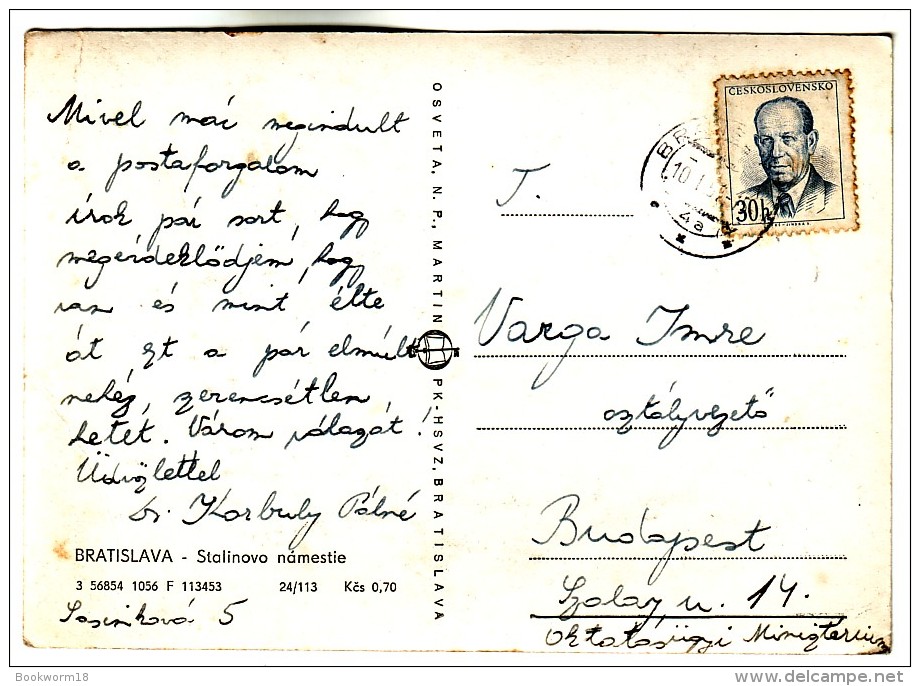 Mivel már megindult
a postaforgalom
írok pár sort, hogy
megérdeklődjem, hogy
van és mint élte
át ezt a pár elmúlt
nehéz, szerencsétlen
hetet. Várom válaszát!
Üdvözlettel
Dr. Korbuly Pálné
BRATISLAVA - Stalinovo námestie
3 56854 1056 F 113453 24/113 Kčs 0,70
5
OSVETA, N. P., MARTIN PK-HSVZ, BRATISLAVA
ČESKOSLOVENSKO
30h
BR
10 I
4a
T.
Varga Imre
osztályvezető
Budapest
Szalay u. 14.
Oktatásügyi Minisztérium
Bookworm18
delcampe.net